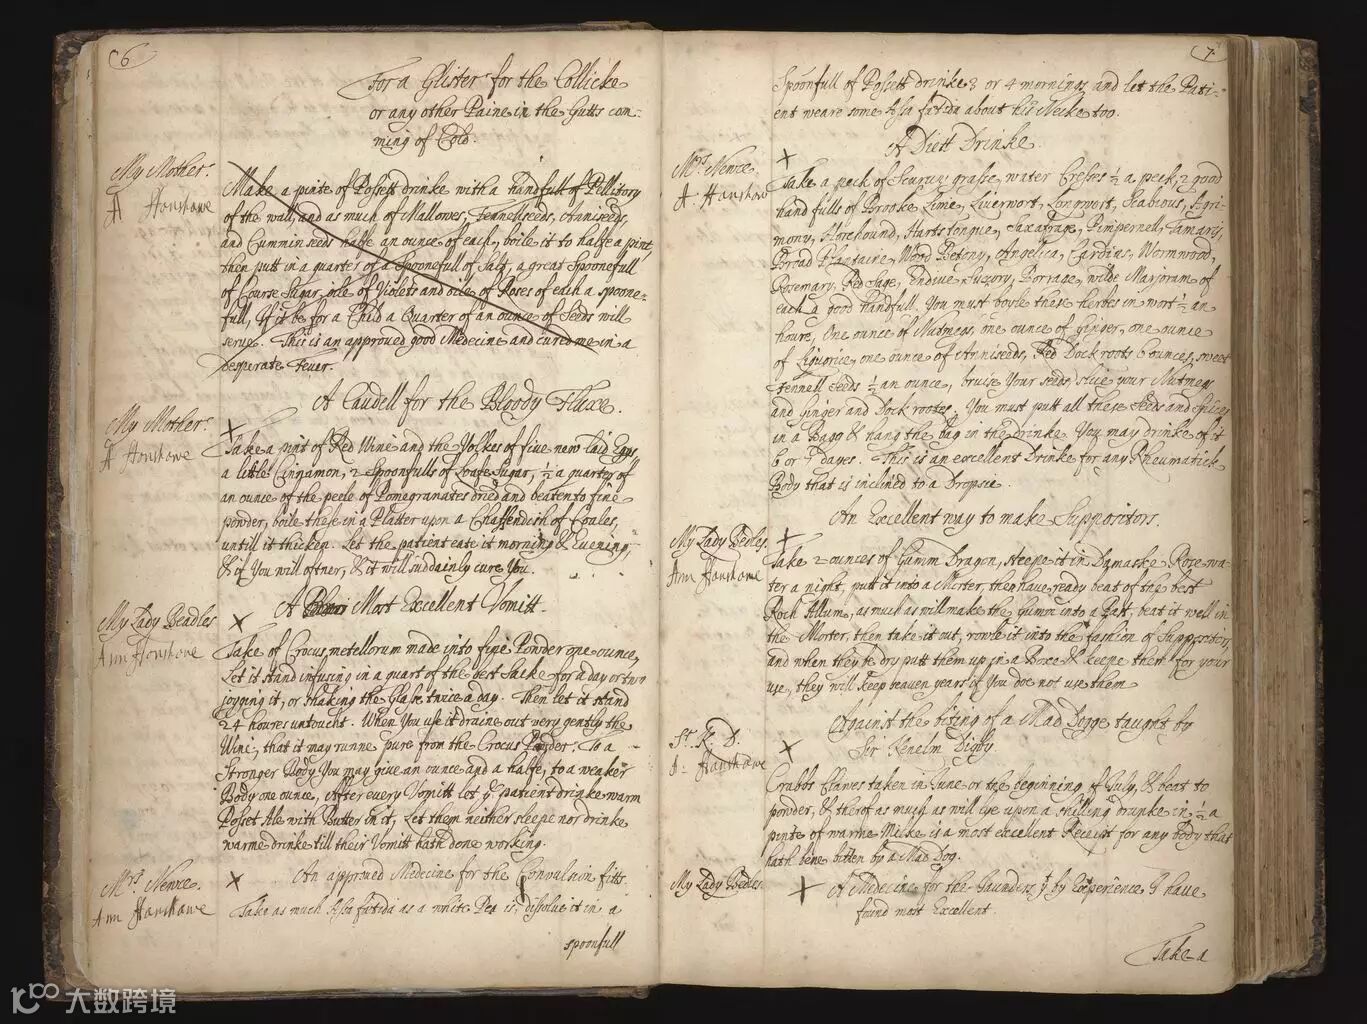 6
For a Glister for the Collicke
or any other Paine in the Gutts com-
ming of Cold.
My Mother.
A Fanshawe
Make a pinte of Possett drinke with a handfull of Pellitory
of the wall, and as much of Mallowes, Fennellseeds, Anniseeds,
and Cummin seeds halfe an ounce of each, boile it to halfe a pint,
then putt in a quarter of a Spoonefull of Salt, a great Spoonefull
of Course Sugar, oile of Violets and oile of Roses of each a spoone-
full, If it be for a Child a Quarter of an ounce of Seeds will
serve. This is an approved good Medecine and cured me in a
desperate Fever.
A Caudell for the Bloody Fluxe.
My Mother.
A Fanshawe
X
Take a pint of Red Wine and the Yolkes of five new laid Eggs
a little Cinnamon, 2 Spoonfulls of Loafe Sugar, ½ a quarter of
an ounce of the peele of Pomegranates dried and beaten to fine
powder, boile these in a Platter upon a Chaffendish of Coales,
untill it thicken. Let the patient eate it morning & Evening,
& if You will oftner, & it will suddainly cure You.
A Most Excellent Vomitt.
My Lady Beadles
Ann Fanshawe
X
Take of Crocus metellorum made into fine Powder one ounce,
Let it stand infusing in a quart of the best Sacke for a day or two
joging it, or shaking the Glasse twice a day. Then let it stand
24 houres untoucht. When You use it draine out very gently the
Wine, that it may runne pure from the Crocus Powder. To a
Stronger Body You may give an ounce and a halfe, to a weaker
Body one ounce, After every Vomitt let ye patient drinke warm
Posset Ale with Butter in it, Let them neither sleepe nor drinke
warme drinke till their Vomitt hath done working.
Mrs. Newce.
Ann Fanshawe
X
An approved Medecine for the Convulsion fitts.
Take as much Assa fatida as a white Pea is, dissolve it in a
spoonfull
7
Spoonfull of Possett drinke 3 or 4 mornings and let the Pati-
ent weare some Assa fatida about his Necke too.
A Diett Drinke.
Mrs. Newce.
A Fanshawe
X
Take a peck of Scurvy grasse, water Cresses ½ a peck, 2 good
handfulls of Brooke Lime, Liverwort, Longwort, Scabious, Agri-
mony, Horehound, Harts tongue, Saxafrage, Pimpernell, Tamary,
Broad Plantaire, Wood Betony, Angelica, Cardias, Wormwood,
Rosemary, Red Sage, Endive Succory, Borrage, wilde Marjoram of
each a good handfull. You must boyle these herbes in wort ½ an
houre, One ounce of Nutmegs, one ounce of Ginger, one ounce
of Liquorice, one ounce of Anniseeds, Red Dock roots 6 ounces, sweet
Fennell Seeds ½ an ounce, bruise Your seeds, slice your Nutmegs
and Ginger and Dock rootes. You must putt all these Seeds and Spices
in a Bagg & hang the bag in the drinke. You may drinke of it
6 or 7 dayes. This is an excellent Drinke for any Rheumatick
Body that is inclined to a Dropsie.
An Excellent way to make Suppositors.
My Lady Bedles.
Ann Fanshawe
X
Take 2 ounces of Gumm Dragon, steepe it in Damaske Rosewa-
ter a night, putt it into a Morter, then have ready beat of the best
Roch Allum, as much as will make the Gumm into a Past, beat it well in
the Morter, then take it out, rowle it into the fashion of Suppositors,
and when they be dry putt them up in a Boxe & keepe them for your
use, they will keep seaven years if You doe not use them
Against the biting of a Mad Dogge taught by
Sir Kenelm Digby.
Sr. K. D.
A: Fanshawe
X
Crabbs Clawes taken in June or the beginning of July, & beat to
powder, & therof as much as will lye upon a shilling drunke in ½ a
pinte of warme Milke is a most excellent Receipt for any body that
hath bene bitten by a Mad Dog.
My Lady Bedles.
X
A Medecine for the Jaunders yt by Experience I have
found most Excellent.
Take a
大数跨境